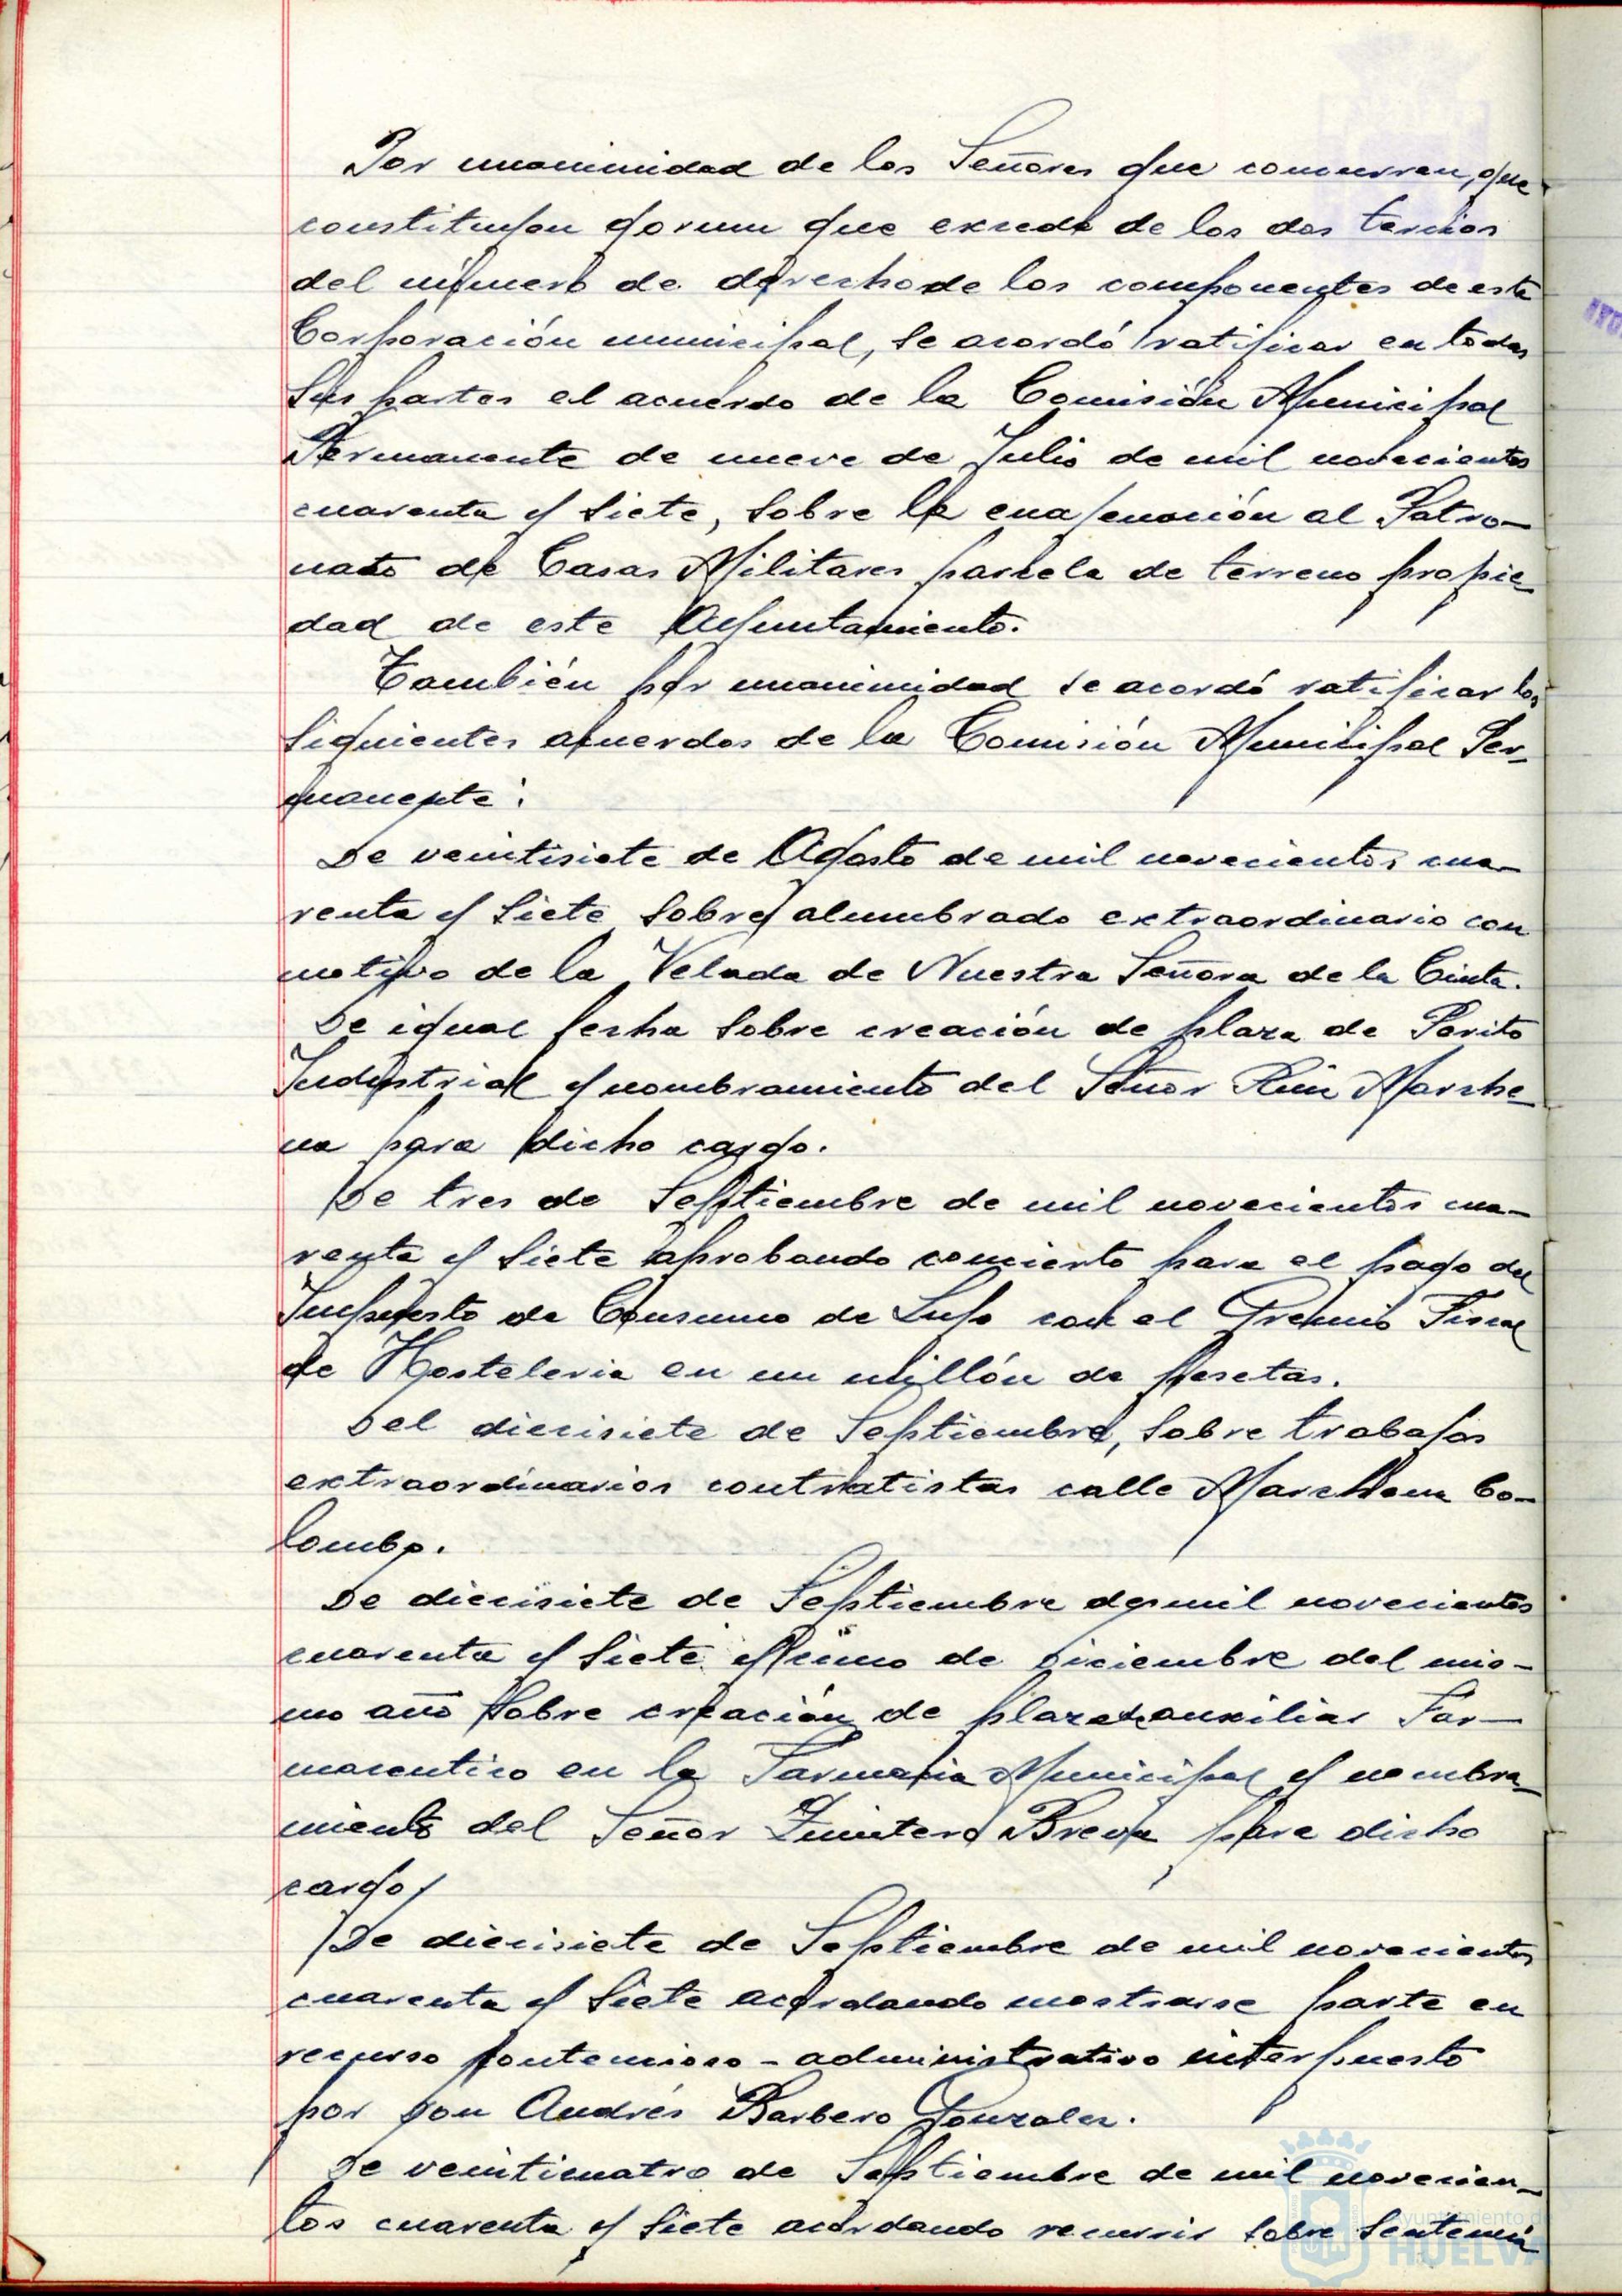 Por unanimidad de los Señores que concurren, que
constituyen qorum que excede de los dos tercios
del número de derecho de los componentes de esta
Corporación municipal, se acordó ratificar en todas
sus partes el acuerdo de la Comisión Municipal
Permanente de nueve de Julio de mil novecientos
cuarenta y siete, sobre la enajenación al Patro-
nato de Casas Militares parcela de terreno propie-
dad de este Ayuntamiento.
También por unanimidad se acordó ratificar los
siguientes acuerdos de la Comisión Municipal Per-
manente:
De veintisiete de Agosto de mil novecientos cua-
renta y siete sobre alumbrado extraordinario con
motivo de la Velada de Nuestra Señora de la Cinta.
De igual fecha sobre creación de plaza de Perito
Industrial y nombramiento del Señor Ruiz Marche-
na para dicho cargo.
De tres de Septiembre de mil novecientos cua-
renta y siete aprobando concierto para el pago del
Impuesto de Consumo de Lujo con el Gremio Fiscal
de Hosteleria en un millón de pesetas.
Del diecisiete de Septiembre, sobre trabajos
extraordinarios contratistas calle Marchena Co-
lombo.
De diecisiete de Septiembre de mil novecientos
cuarenta y siete y primero de Diciembre del mis-
mo año sobre creación de plaza de auxiliar Far-
maceutico en la Farmacia Municipal y nombra-
miento del Señor Quintero Breva para dicho
cargo.
De diecisiete de Septiembre de mil novecientos
cuarenta y siete acordando mostrarse parte en
recurso contencioso-administrativo interpuesto
por Don Andrés Barbero Gonzalez.
De veinticuatro de Septiembre de mil novecien-
tos cuarenta y siete acordando recurrir sobre sentencia
Ayuntamiento de
HUELVA